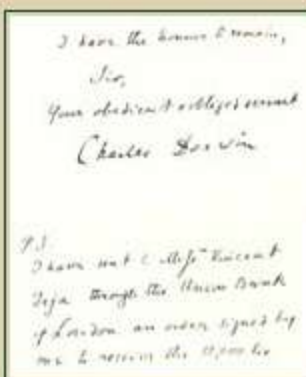 I have the honour to remain,
Sir,
Your obedient obliged servant
Charles Darwin
P.S.
I have sent Vincent
through the Union Bank
of London an order signed by
me to receive the